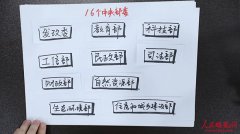 16个中央部委
发改委 教育部 科技部
工信部 民政部 司法部
财政部 自然资源部
生态环境部 住房和城乡建设部
人民健康网